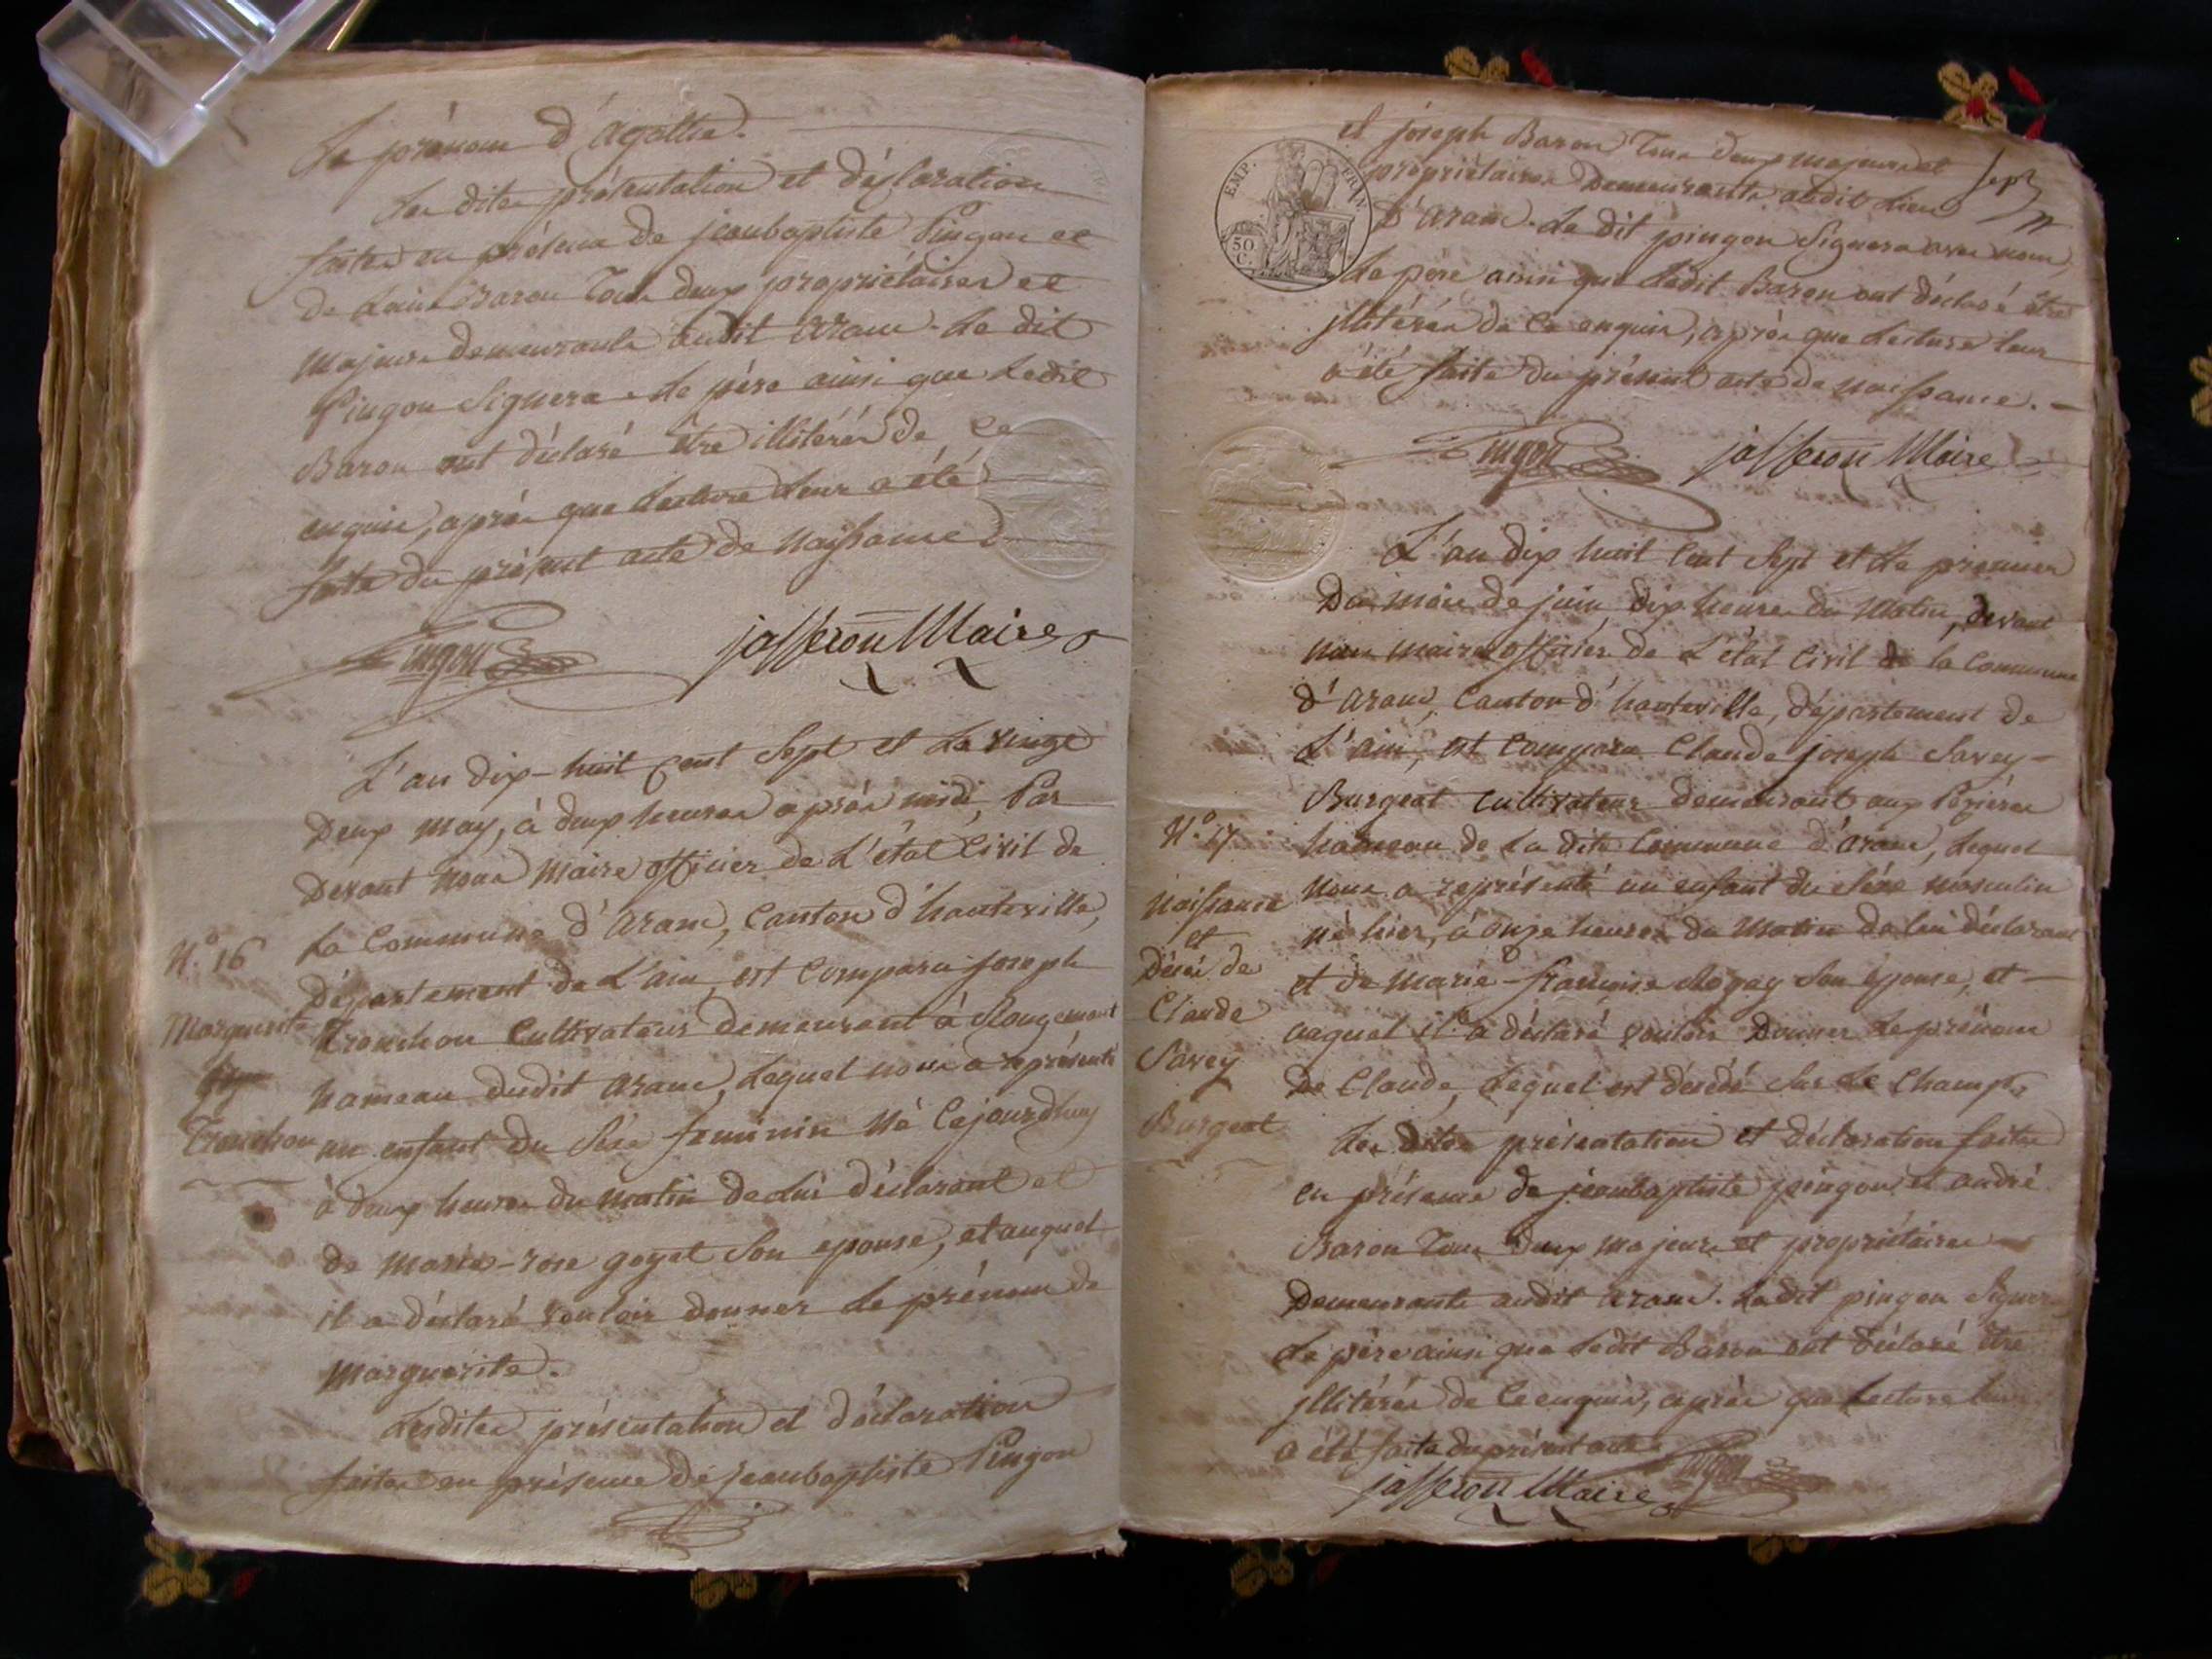 le prénom d'agathe.
Les dites présentation et déclaration
faites en présence de jeanbaptiste Pingon et
de Louis Baron Tous deux propriétaires et
Majeurs demeurants audit aranc. Le dit
Pingon Signera. Le père ainsi que Ledit
Baron ont déclaré être illitérés de ce
enquis, après que Lecture Leur a été
faite du présent acte de Naissance
Pingon jasseron Maire
L'an dix-huit cent Sept et Le vingt
Deux May, à deux heures après midi, Par
Devant Nous Maire officier de L'état Civil de
La Commune d'aranc, Canton d'hauteville,
Département de L'ain, est Comparu joseph
Tronchon Cultivateur demeurant à Rougemont
hameau dudit aranc, Lequel nous a représenté
un enfant du Séxe féminin Né Cejourdhuy
à deux heures du matin de Lui déclarant et
de Marie-rose goyet Son epouse, et auquel
il a déclaré vouloir donner Le prénom de
Marguerite.
Lesdites présentation et déclaration
faites en présence de jeanbaptiste Pingon
N.° 16
Marguerite
Tronchon
EMP. FRAN.
50 C.
Sept
et joseph Baron Tous deux majeurs et
propriétaires Demeurants audit Lieu
D'aranc. Le dit pingon Signera avec nous,
Le père ainsi que Ledit Baron ont déclaré être
jllitérés de Ce enquis, après que Lecture leur
a été faite du présent acte de Naissance.
Pingon jasseron Maire
L'an dix huit Cent Sept et Le premier
Du Mois de juin, dix heures du Matin, devant
nous maire officier de L'état Civil de la Commune
d'aranc, Canton d'hauteville, département de
L'ain, est Comparu Claude joseph Savey-
Burgeat Cultivateur demeurant aux Pézières
hameau de La dite Commune d'aranc, Lequel
Nous a représenté un enfant du séxe masculin
né hier, à onze heures du Matin de lui déclarant
et de Marie-françoise Son épouse, et
auquel il a déclaré vouloir Donner Le prénom
De Claude, Lequel est décédé Sur Le Champ.
Les dites présentation et déclaration faites
en présence de jeanbaptiste pingon et andré
Baron Tous deux Majeurs et propriétaires
Demeurants audit aranc. Ledit pingon Signera
Le père ainsi que Ledit Baron ont déclaré être
jllitérés de Ce enquis, après que Lecture leur
a été faite du présent acte
jasseron Maire Pingon
N.° 17
Naissance
et
Décès de
Claude
Savey
Burgeat